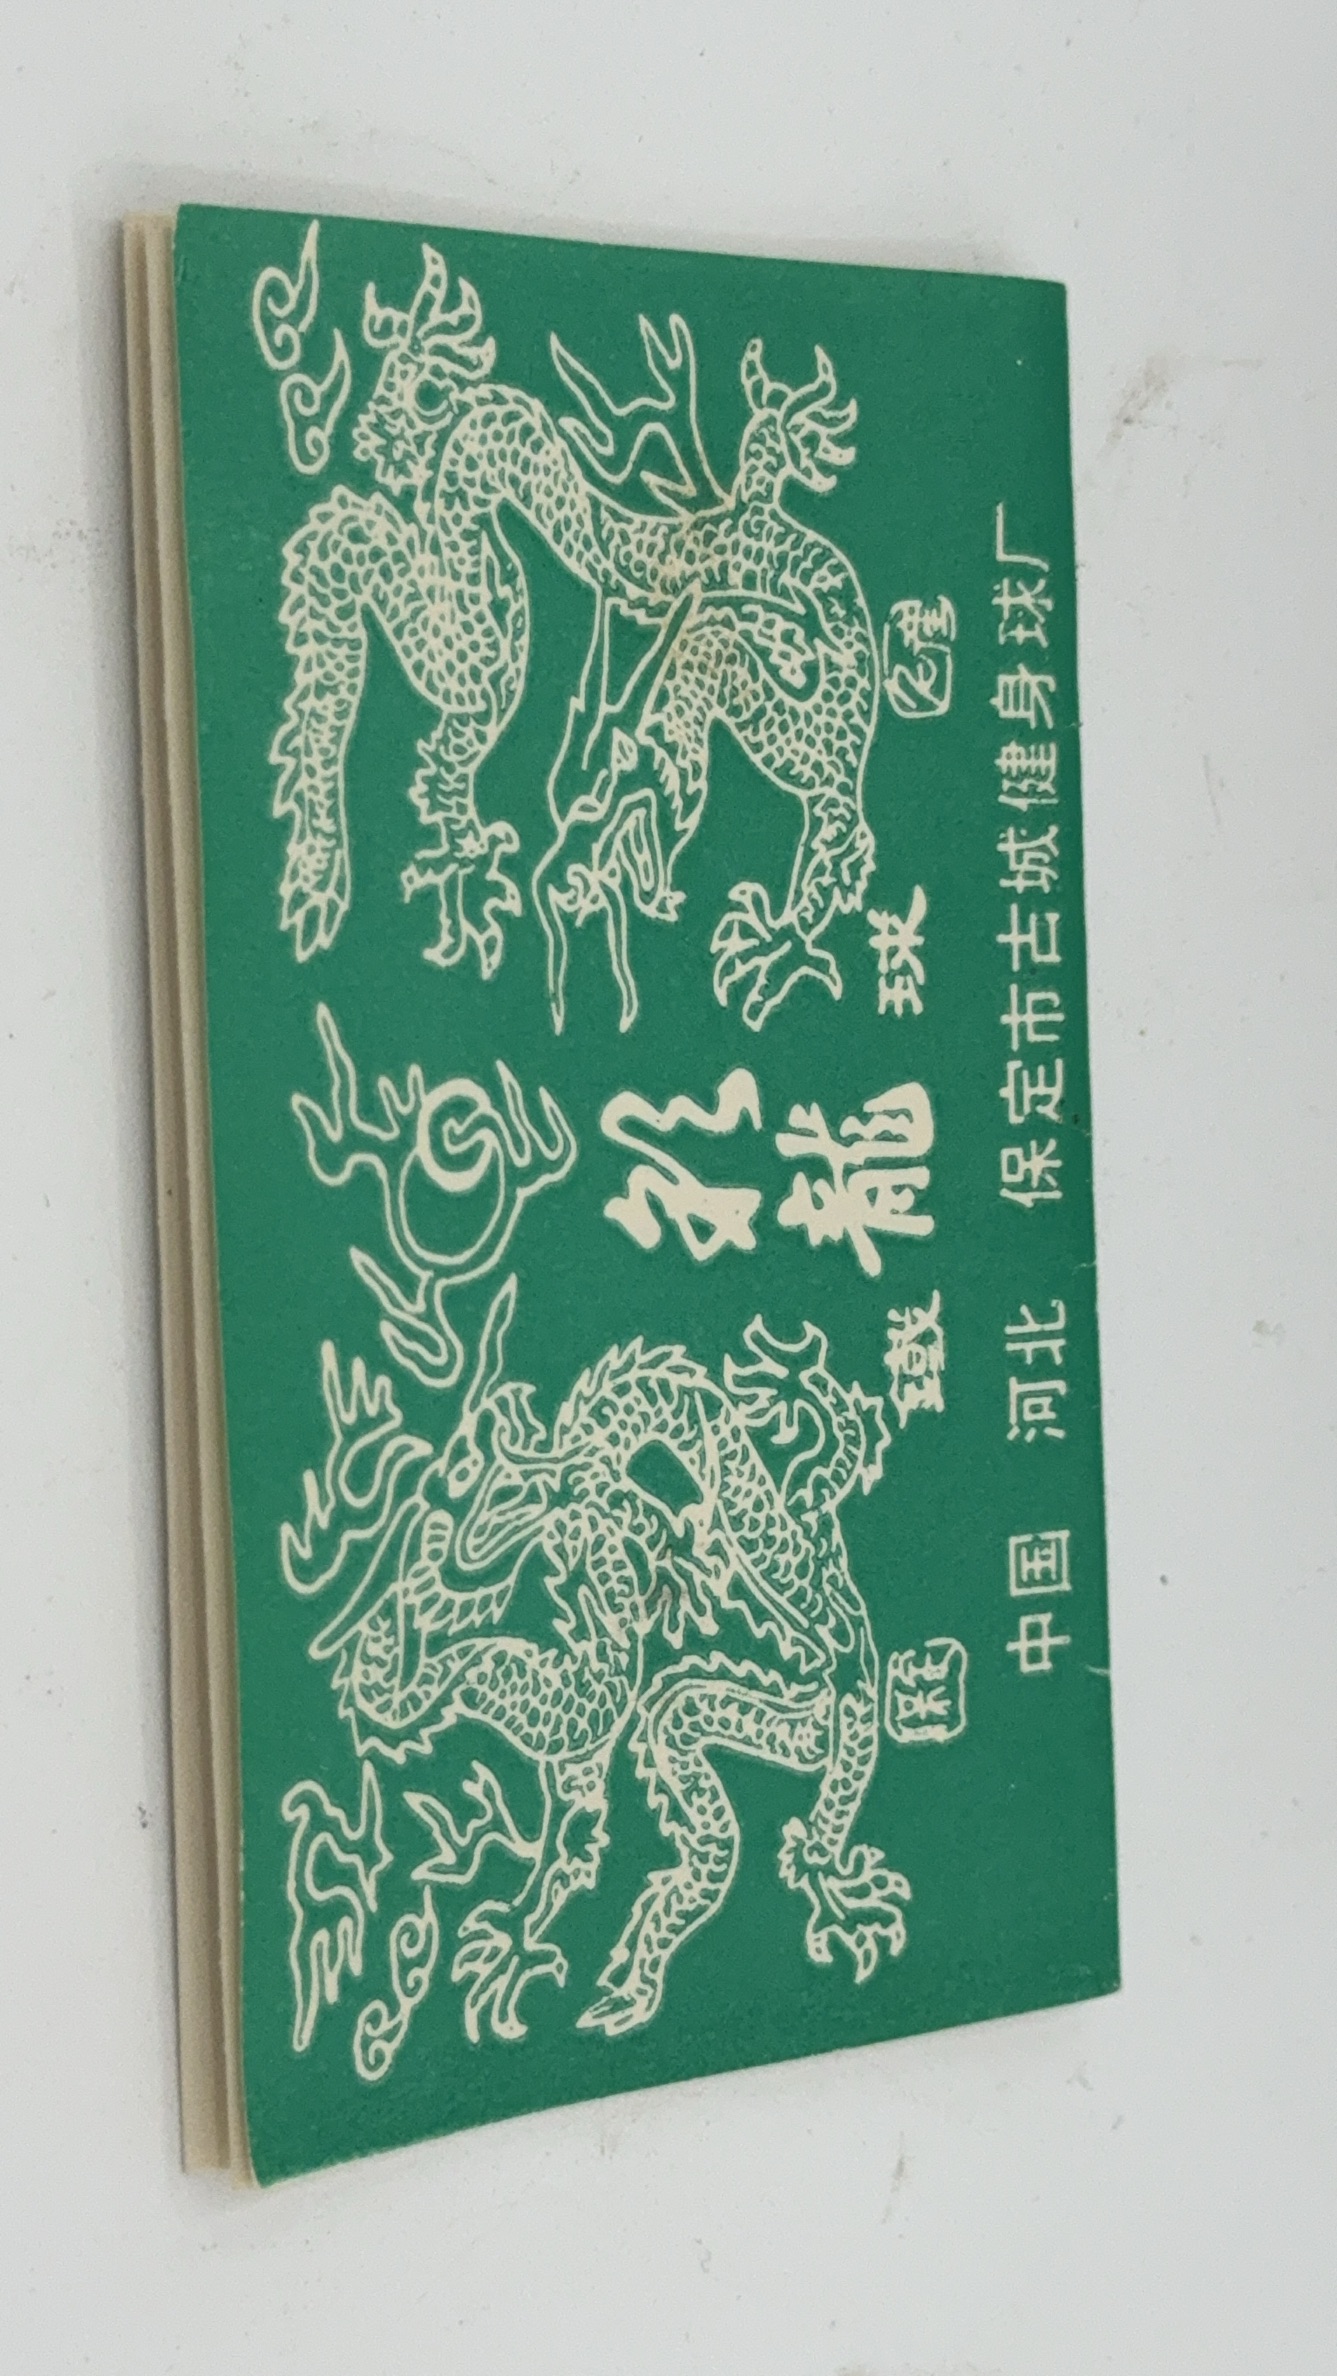 双
龍
球
保定
中国 河北 保定市古城健身球厂